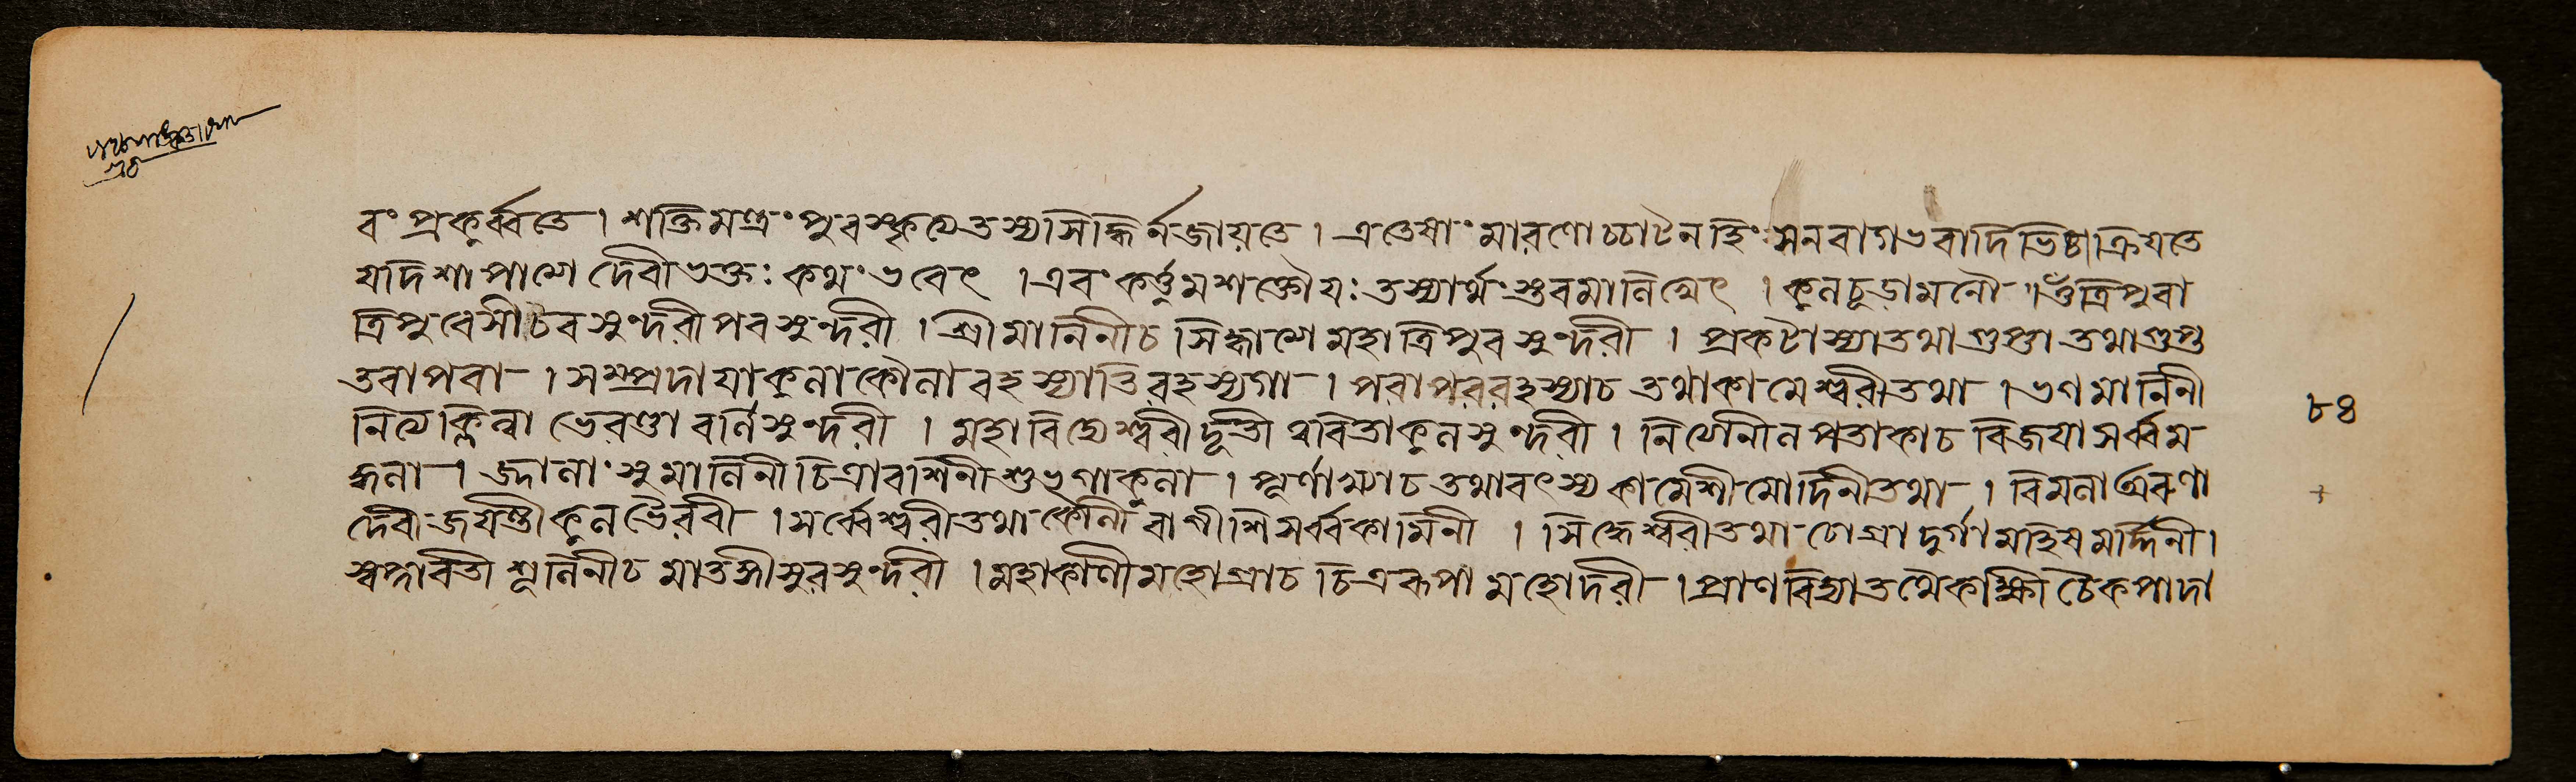 বং প্রকুর্ব্বতে । শক্তিমন্ত্রং পুরস্কৃত্য তস্য সিদ্ধির্ন জায়তে । এতেষাং মারণোচ্চাটনহিংসনবাগ্ভবাদিভিঃ ক্রিয়তে
যদি শাপাশে দেবীভক্তঃ কথং ভবেৎ । এবং কর্ত্তুমশক্তো যঃ তস্যার্থং স্তবমালিখেৎ । কুলচূড়ামনৌ । ওঁ ত্রিপুরা
ত্রিপুরেশী চৈব সুন্দরী পরসুন্দরী । শ্রীমালিনী চ সিদ্ধাশে মহাত্রিপুরসুন্দরী । প্রকটাস্যা তথা গুপ্তা তথা গুপ্ত
তরাপরা । সম্প্রদায়া কুলা কৌলা রহস্যাতিরহস্যগা । পরাপররহস্যা চ তথা কামেশ্বরী তথা । ভগমালিনী
নিত্যক্লিন্না ভেরুণ্ডা বহ্নিসুন্দরী । মহাবিদ্যেশ্বরী দূতী ত্বরিতা কুলসুন্দরী । নিত্যা নীলপতাকা চ বিজয়া সর্ব্বম
ঙ্গলা । জ্বালাংসুমালিনী চিত্রা বশিনী শুভগা কুলা । পূর্ণা চ তথা বৎস্য কামেশী মোদিনী তথা । বিমলা অরুণা
দেবী জয়ন্তী কুলভৈরবী । সর্ব্বেশ্বরী তথা কৌলী বাগীশি সর্ব্বকামিনী । সিদ্ধেশ্বরী তথা গ্রো দুর্গা মহিষমর্দ্দিনী ।
স্বপ্নাবতী শূলিনী চ মাতঙ্গী সুরসুন্দরী । মহাকালী মহোগ্রা চ চিত্ররূপা মহোদরী । প্রাণবিদ্যা তথৈকাক্ষী চৈকপাদা
৮৪